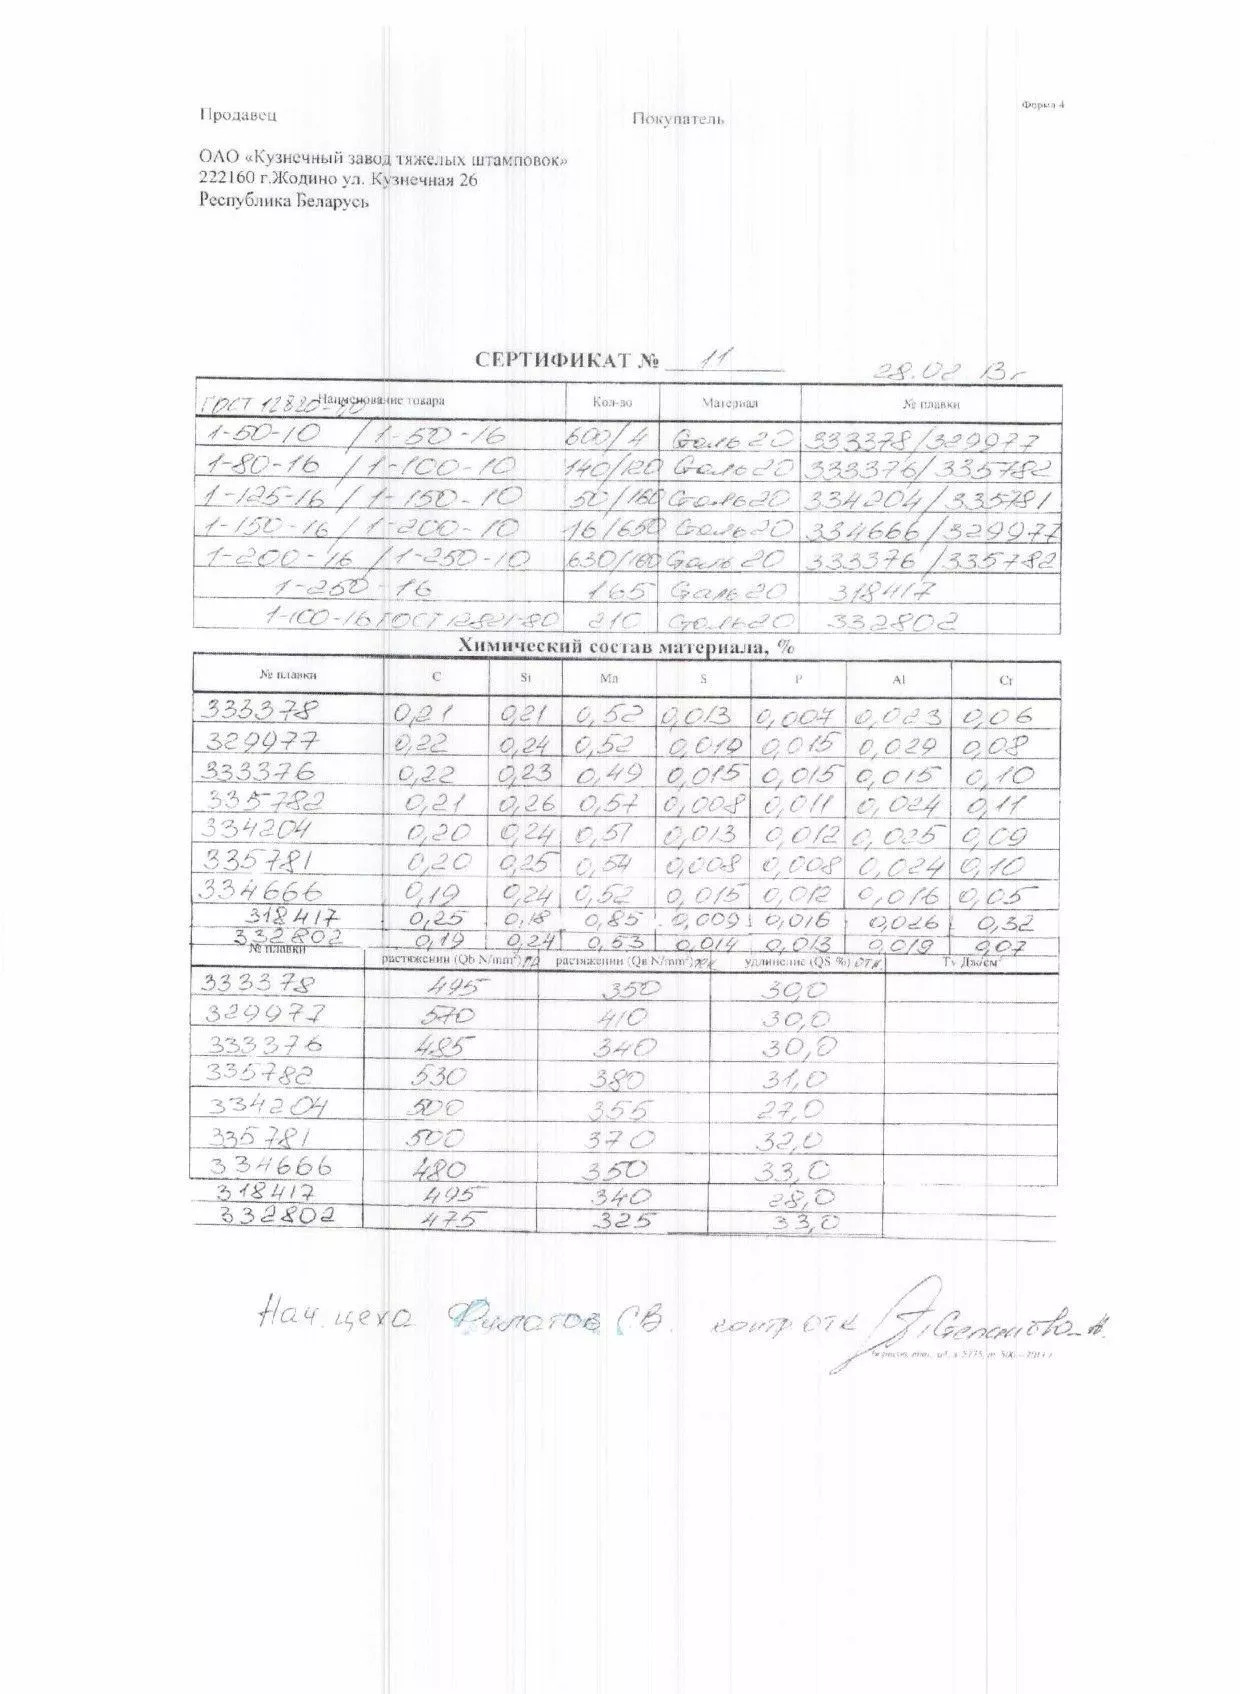 Форма 4
Продавец Покупатель
ОАО «Кузнечный завод тяжелых штамповок»
222160 г.Жодино ул. Кузнечная 26
Республика Беларусь
СЕРТИФИКАТ № 11 28.02 13 г
ГОСТ 12820-80 Наименование товара Кол-во Материал № плавки
1-50-10 / 1-50-16 600/4 Сталь 20 333378/329977
1-80-16 / 1-100-10 140/120 Сталь 20 333376/335782
1-125-16 / 1-150-10 50/160 Сталь 20 334204/335781
1-150-16 / 1-200-10 16/650 Сталь 20 334666/329977
1-200-16 / 1-250-10 630/160 Сталь 20 333376/335782
1-250-16 165 Сталь 20 318417
1-100-16 ГОСТ 12821-80 210 Сталь 20 332802
Химический состав материала, %
№ плавки C Si Mn S P Al Cr
333378 0,21 0,21 0,52 0,013 0,007 0,023 0,06
329977 0,22 0,24 0,52 0,019 0,015 0,029 0,08
333376 0,22 0,23 0,49 0,015 0,015 0,015 0,10
335782 0,21 0,26 0,57 0,008 0,011 0,024 0,11
334204 0,20 0,24 0,51 0,013 0,012 0,025 0,09
335781 0,20 0,25 0,54 0,008 0,008 0,024 0,10
334666 0,19 0,24 0,52 0,015 0,012 0,016 0,05
318417 0,25 0,18 0,85 0,009 0,016 0,026 0,32
332802 0,19 0,24 0,53 0,014 0,013 0,019 0,07
№ плавки растяжении (Qb N/mm²) растяжении (Qв N/mm²) удлинение (QS %) Tv Дж/см²
333378 495 350 30,0
329977 570 410 30,0
333376 485 340 30,0
335782 530 380 31,0
334204 500 355 27,0
335781 500 370 32,0
334666 480 350 33,0
318417 495 340 28,0
332802 475 325 33,0
Нач. цеха Филатов С.В. контр ОТК